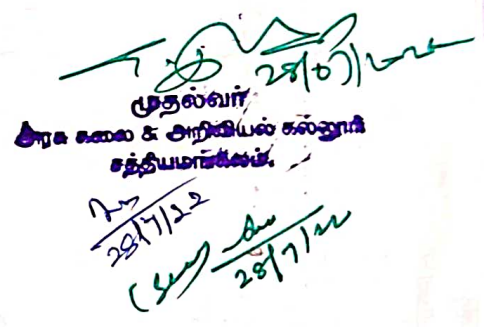 28/07/2022
முதல்வர்
அரசு கலை & அறிவியல் கல்லூரி
சத்தியமங்கலம்.
28/7/22
28/7/22